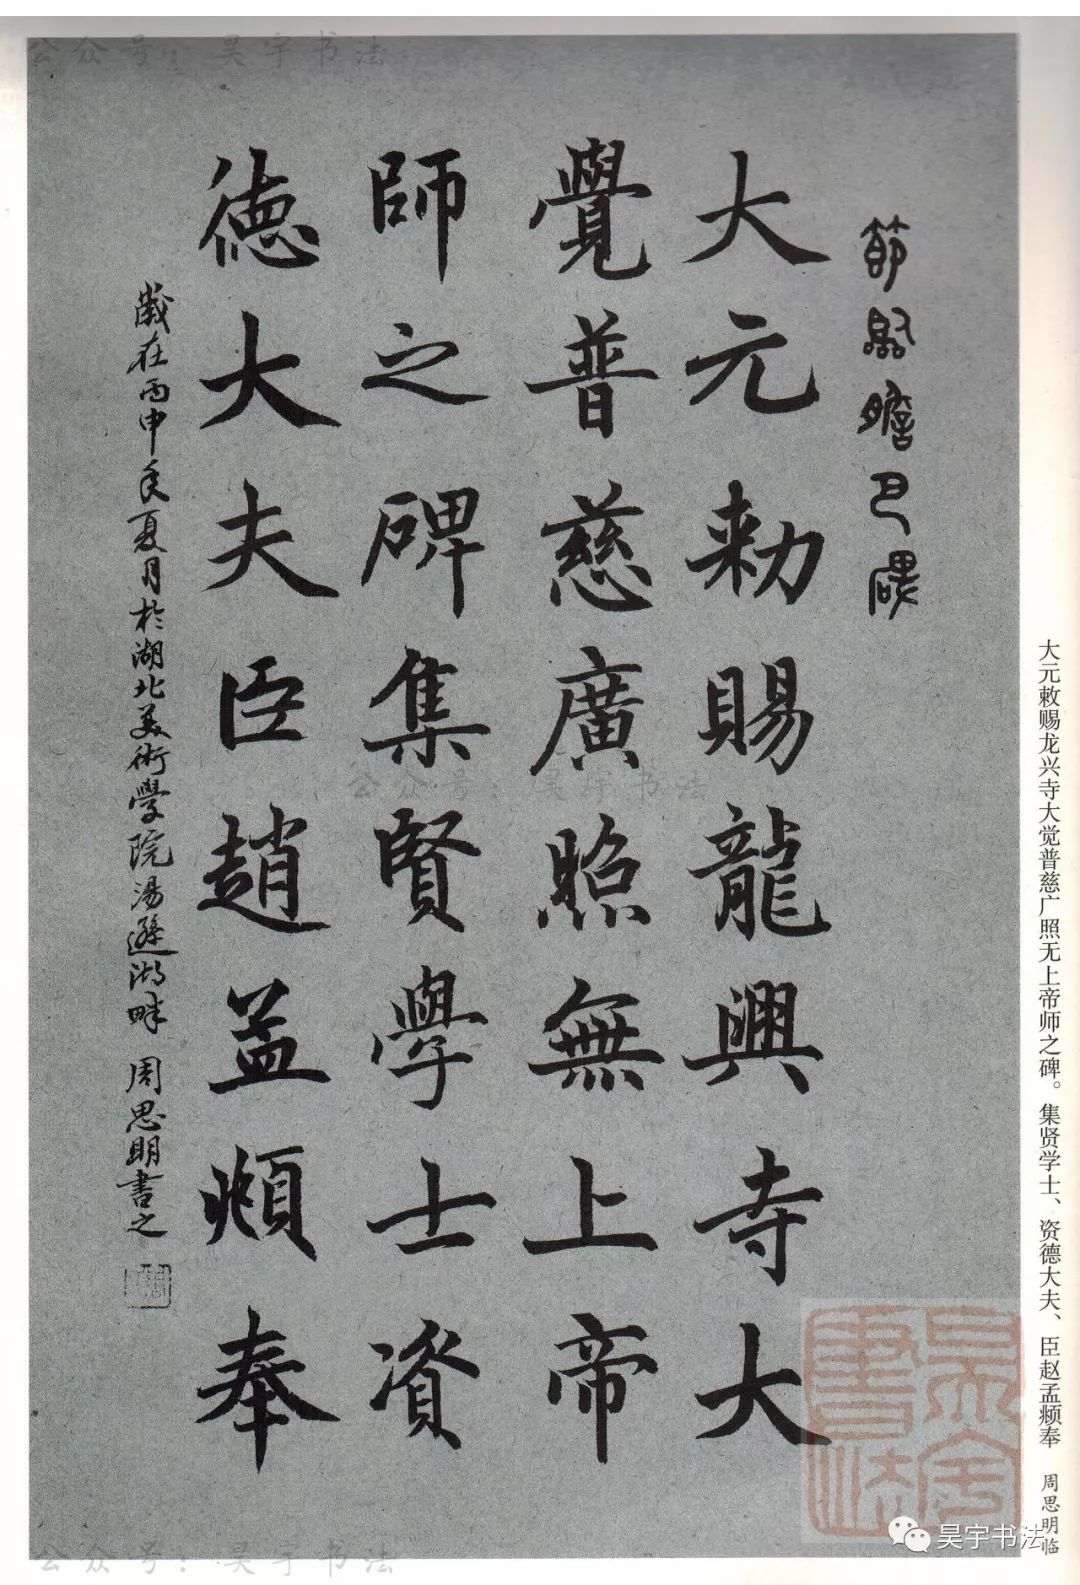 公众号：昊宇书法
節臨膽巴碑
大元敕賜龍興寺大
覺普慈廣照無上帝
師之碑集賢學士資
德大夫臣趙孟頫奉
歲在丙申年夏月於湖北美術學院湯遜湖畔 周思明書之
大元敕赐龙兴寺大觉普慈广照无上帝师之碑。集贤学士、资德大夫、臣赵孟頫奉 周思明临
公众号：昊宇书法
昊宇書法
昊宇书法
公众号：昊宇书法